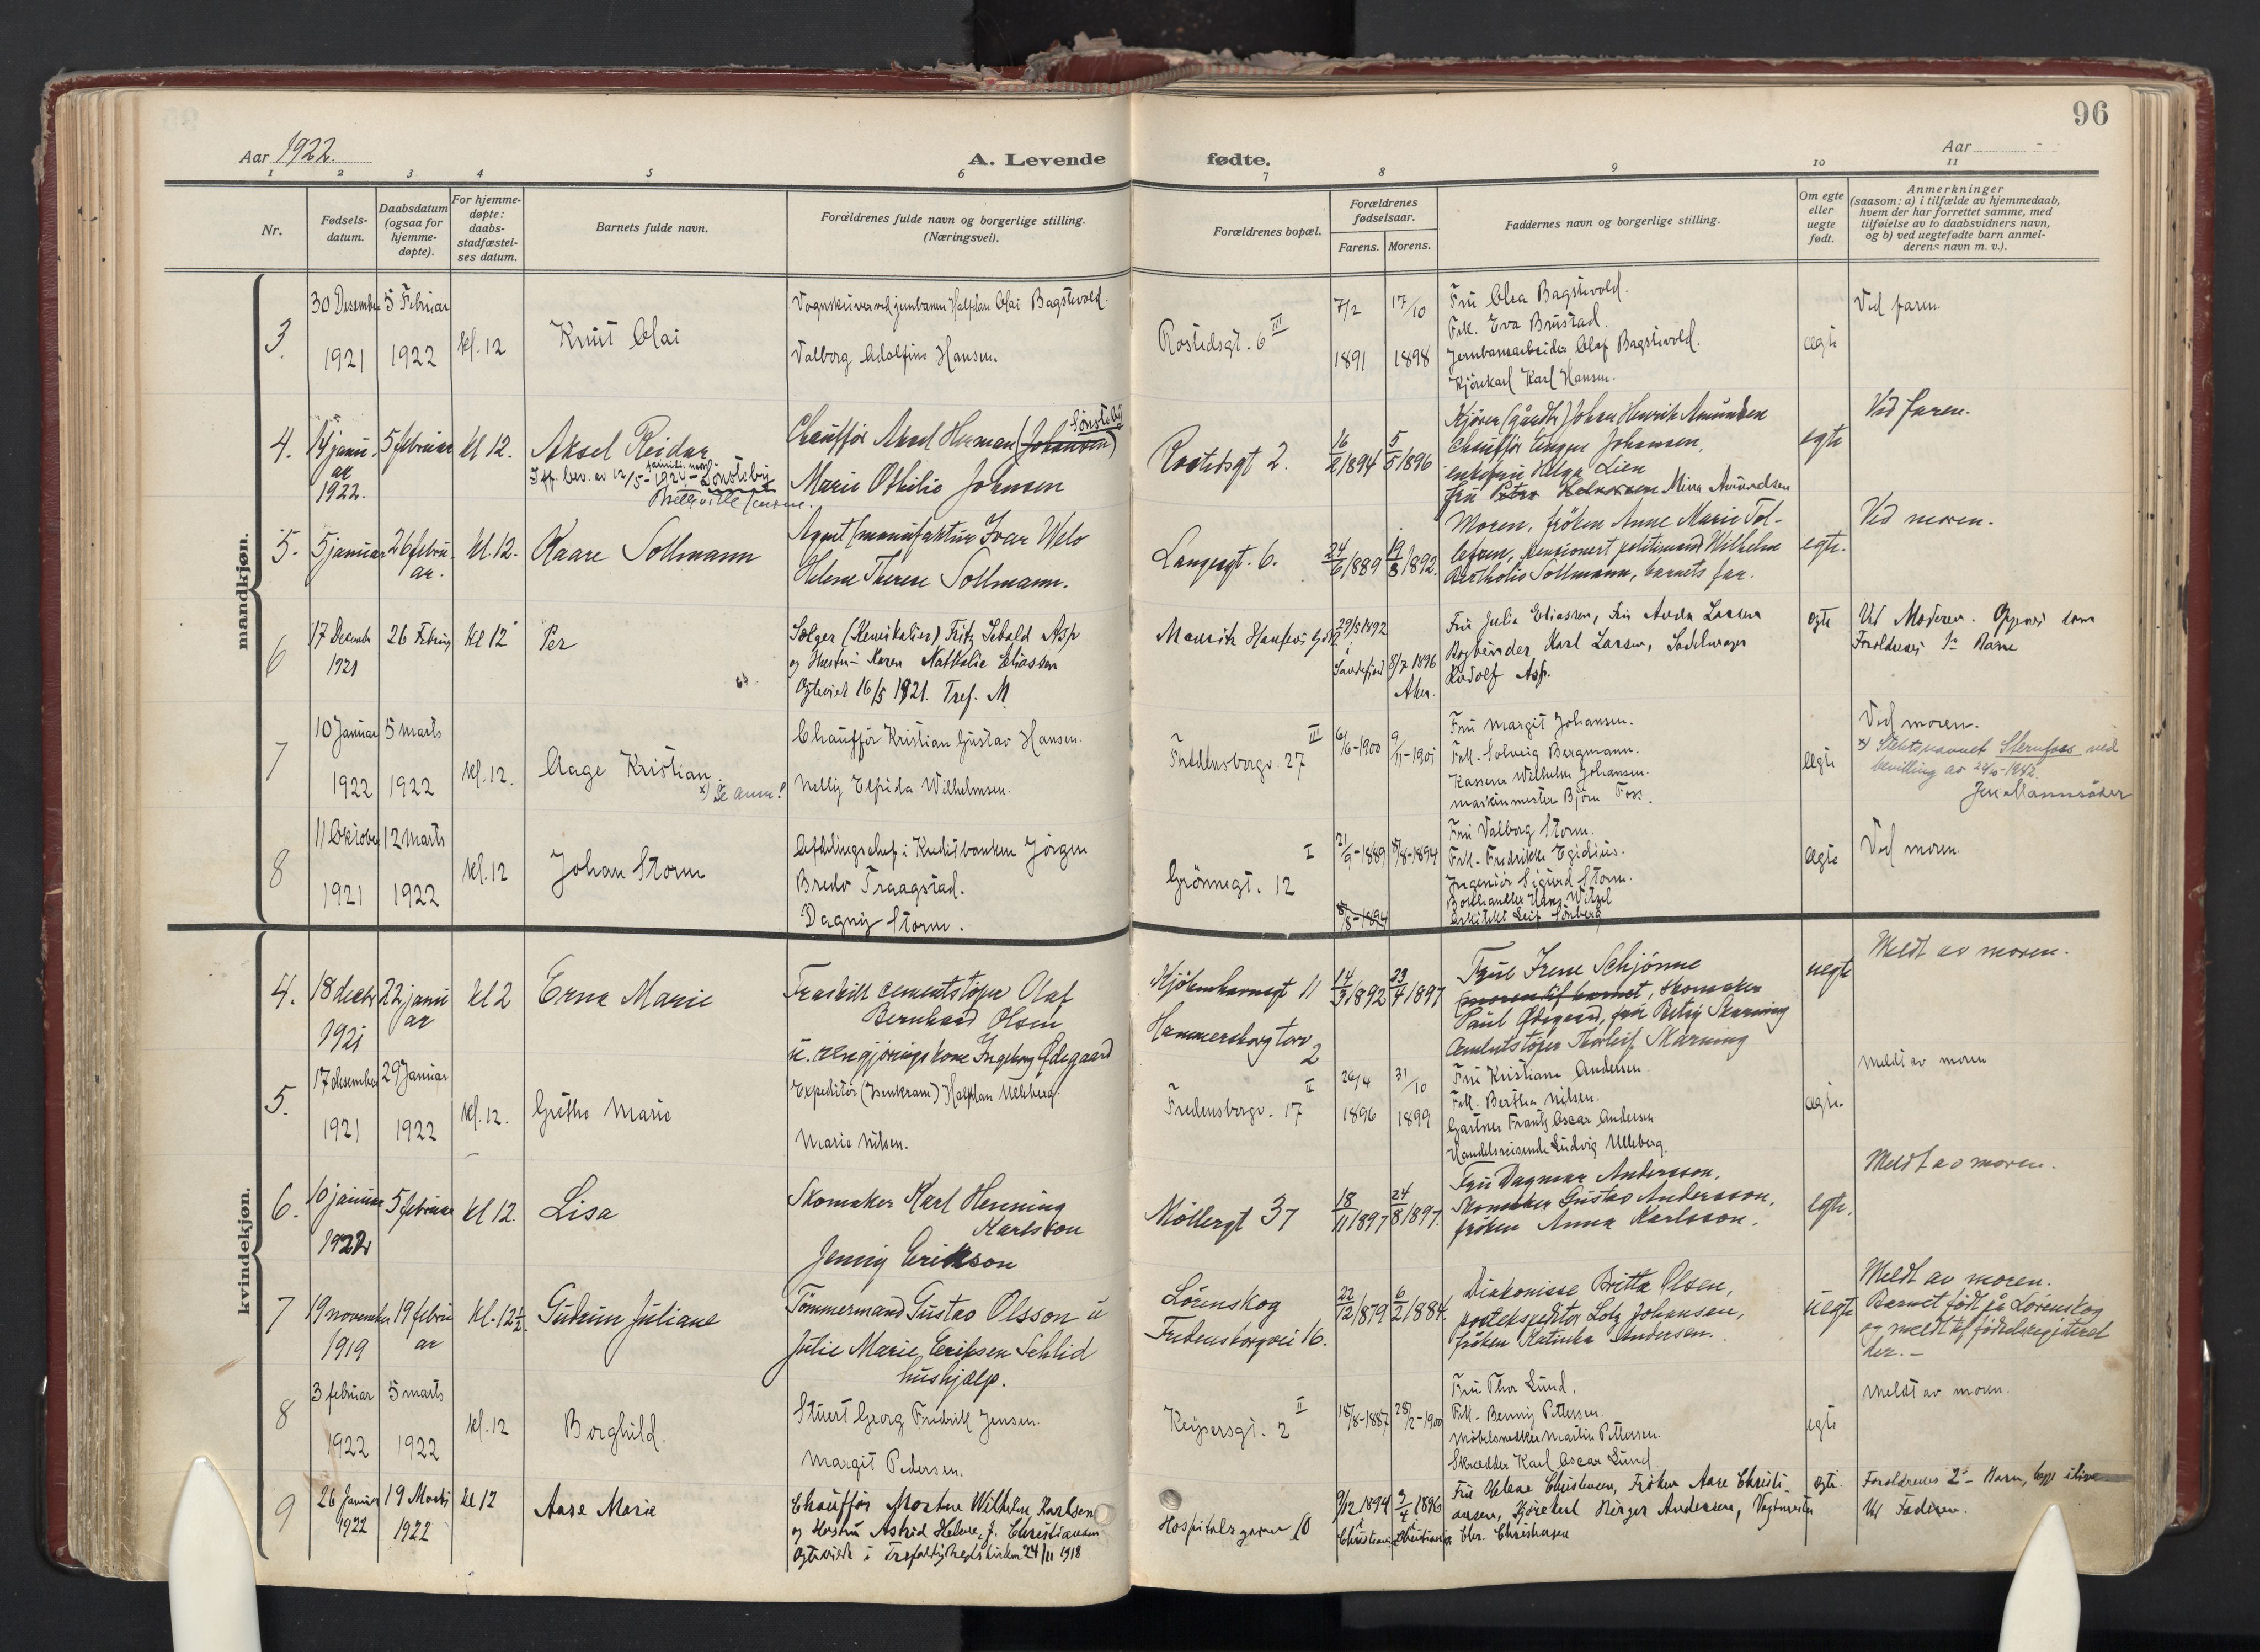 96
Aar 1922.
A. Levende fødte.
Aar
1 2 3 4 5 6 7 8 9 10 11
Nr.
Fødsels-
datum.
Daabsdatum
(ogsaa for
hjemme-
døpte).
For hjemme-
døpte:
daabs-
stadfæstel-
ses datum.
Barnets fulde navn.
Forældrenes fulde navn og borgerlige stilling.
(Næringsvei).
Forældrenes bopæl.
Forældrenes
fødselsaar.
Farens. Morens.
Faddernes navn og borgerlige stilling.
Om egte
eller
uegte
født.
Anmerkninger
(saasom: a) i tilfælde av hjemmedaab,
hvem der har forrettet samme, med
tilføielse av to daabsvidners navn,
og b) ved uegtefødte barn anmel-
derens navn m. v.).
mandkjøn.
3.
30 Desember
1921
5 Februar
1922
kl. 12
Knut Olai
Vognskriver ved jernbanen Halfdan Olai Bagstevold.
Valborg Adolfine Hansen.
Rostedsgt. 6 III
7/2
1891
17/10
1898
Fru Olea Bagstevold.
Frk. Eva Brustad.
Jernbanearbeider Olaf Bagstevold.
Kjørekarl Karl Hansen.
ægte
Ved faren.
4.
14 janu-
ar
1922.
5 februar
kl 12.
Aksel Reidar
Iff. bev. av 12/5-1924 familienavn Sønsteby
Chauffør Aksel Herman (Johansen) Sønsteby
Marie Othilie Johnsen
Rostedsgt 2.
16/2 1894
5/5 1896
Kjører (gaardbr) Johan Henrik Amundsen
Chauffør Johansen,
enkefru Helga Lien
fru Mina Amundsen
egte
Ved faren.
5.
5 januar
26 febru-
ar.
kl. 12.
Kaare Sollmann
Agent (manufaktur) Ivar Welo
Helene Therese Sollmann.
Langesgt. 6.
24/6 1889
19/8 1892.
Moren, frøken Anne Marie Tol-
lefsen, pensionert politimand Wilhelm
Bertholio Sollmann, barnets far.
egte.
Ved moren.
6
17 Decembr
1921
26 Februar
kl 12
Per
Sælger (Kemikalier) Fritz Sebald Asp
og Hustru Karen Nathalie Eliassen
Ogteviet 16/5 1921. Tref. M
Mauritz Hansens gt
29/5 1892
i
Sandefjord
8/7 1896
Aker.
Fru Julia Eliassen, Fru Larsen
Bogbinder Karl Larsen, Sadelmager
Rudolf Asp.
egte
Ved Moderen. Opgives som
Foreldrenes 1ste Barn
7
10 Januar
1922
5 marts
1922
kl. 12.
Aage Kristian
x) Se anm.!
Chauffør Kristian Gustav Hansen.
Nelly Elfrida Wilhelmsen.
Fredensborgv. 27 III
6/6-1900
9/11-1901
Fru Margit Johansen.
Frk. Solveig Bergmann.
Kasserer Wilhelm Johansen.
maskinmester Bjørn Foss.
ægte
Ved moren.
x) Slektsnavnet Stenfoss ved
bevilling av 24/10-1942.
8
11 Oktober
1921
12 Marts
1922
kl. 12
Johan Storm
Afdelingschef i Kreditbanken Jørgen
Bredo Traagstad.
Dagny Storm.
Grønnegt. 12 I
21/9-1889
8/8-1894
8/8-1894
Fru Valborg Storm.
Frk. Fredrikke Egidius.
Ingeniør Sigurd Storm.
Bokhandler Hans Witzel
Arkitekt Leif Sønberg
ægte
Ved moren.
kvindekjøn.
4.
18 decbr
1921
22 janu
ar
kl 2
Erna Marie
Fraskilt cementstøper Olaf
Bernhard Olsen
u. rengjøringskone Ingeborg Ødegaard
Kjøbenhavnsgt 11
Hammersborg torv
2
14/3 1892
23/4 1897
Frue Irene Schjønne
(moren til barnet, skomaker
Paul Ødegaard, frue Betsy Skarning
Cementstøper Thorleif Skarning
uegte
Meldt av moren.
5.
17 desember
1921
29 Januar
1922
kl. 12.
Grethe Marie
Expeditør (Isenkram) Halfdan Ulleberg.
Marie Nilsen.
Fredensborgv. 17 II
26/4
1896
31/10
1899
Fru Kristiane Andersen
Frk. Bertha Nilsen.
Gartner Frantz Oscar Andersen
Handelsreisende Ludvig Ulleberg.
ægte.
Meldt av moren
6.
10 januar
1922
5 februar
kl 12.
Lisa
Skomaker Karl Henning
Karlsson
Jenny Erikson
Møllergt 37
18/11 1897
24/8 1897.
Fru Dagmar Andersson,
Skomaker Gustav Andersson,
frøken Anna Karlsson.
egte.
Meldt av moren.
7
19 november
1919
19 febru
ar
kl. 12 1/2.
Gudrun Juliane
Tømmermand Gustav Olsson u
Julie Marie Eriksen Schlid
hushjælp.
Lørenskog
Fredensborgvei 16.
22/12 1879
6/2 1884.
Diakonisse Britta Olsen,
postekspeditør Lotz Johansen,
frøken Katinka Andersen.
uegte
Meldt av moren.
Barnet født på Lørenskog
og meldt til fødselsregisteret
der.
8
3 februar
1922
5 marts
1922
kl. 12
Borghild.
Stuert Georg Fredrik Jensen.
Margit Pedersen.
Keysersgt. 2 II
18/8-1887
28/2-1900
Fru Thor Lund.
Frk. Benny Pettersen.
Møbelsnekker Martin Pettersen.
Skrædder Karl Oscar Lund
egte
Meldt av moren.
9
26 Januar
1922
19 Marts
1922
kl 12
Aase Marie
Chauffør Morten Wilhelm Karlsen
og Hustru Astrid Helene, f. Christiansen
Ogteviet i Trefoldighedskirken 24/11 1918
Hospitalsgaten 10
9/12 1894
i
Christiania
2/4 1896
i
Christiania
Fru Helene Christensen, Frøken Aase Christi-
ansen, Kjørekarl Birger Andersen, Vagtmester
Chr. Christiansen
egte.
Foreldrenes 2det Barn, begge ilive
Ved Faderen.